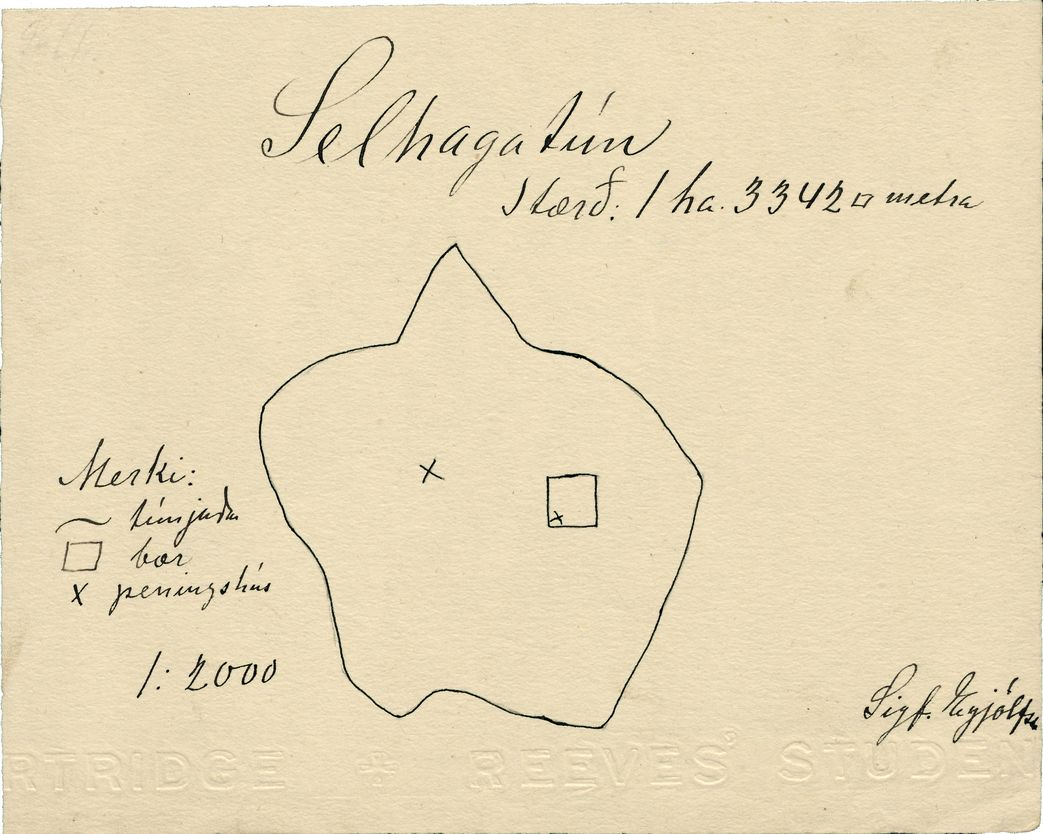 Selhagatún
Stærð: 1 ha. 3342 □ metra
Merki:
túnjaðar
□ bær
x peningshús
1:2000
Sigf. Eyjólfs
RTRIDGE * REEVES' STUDEN